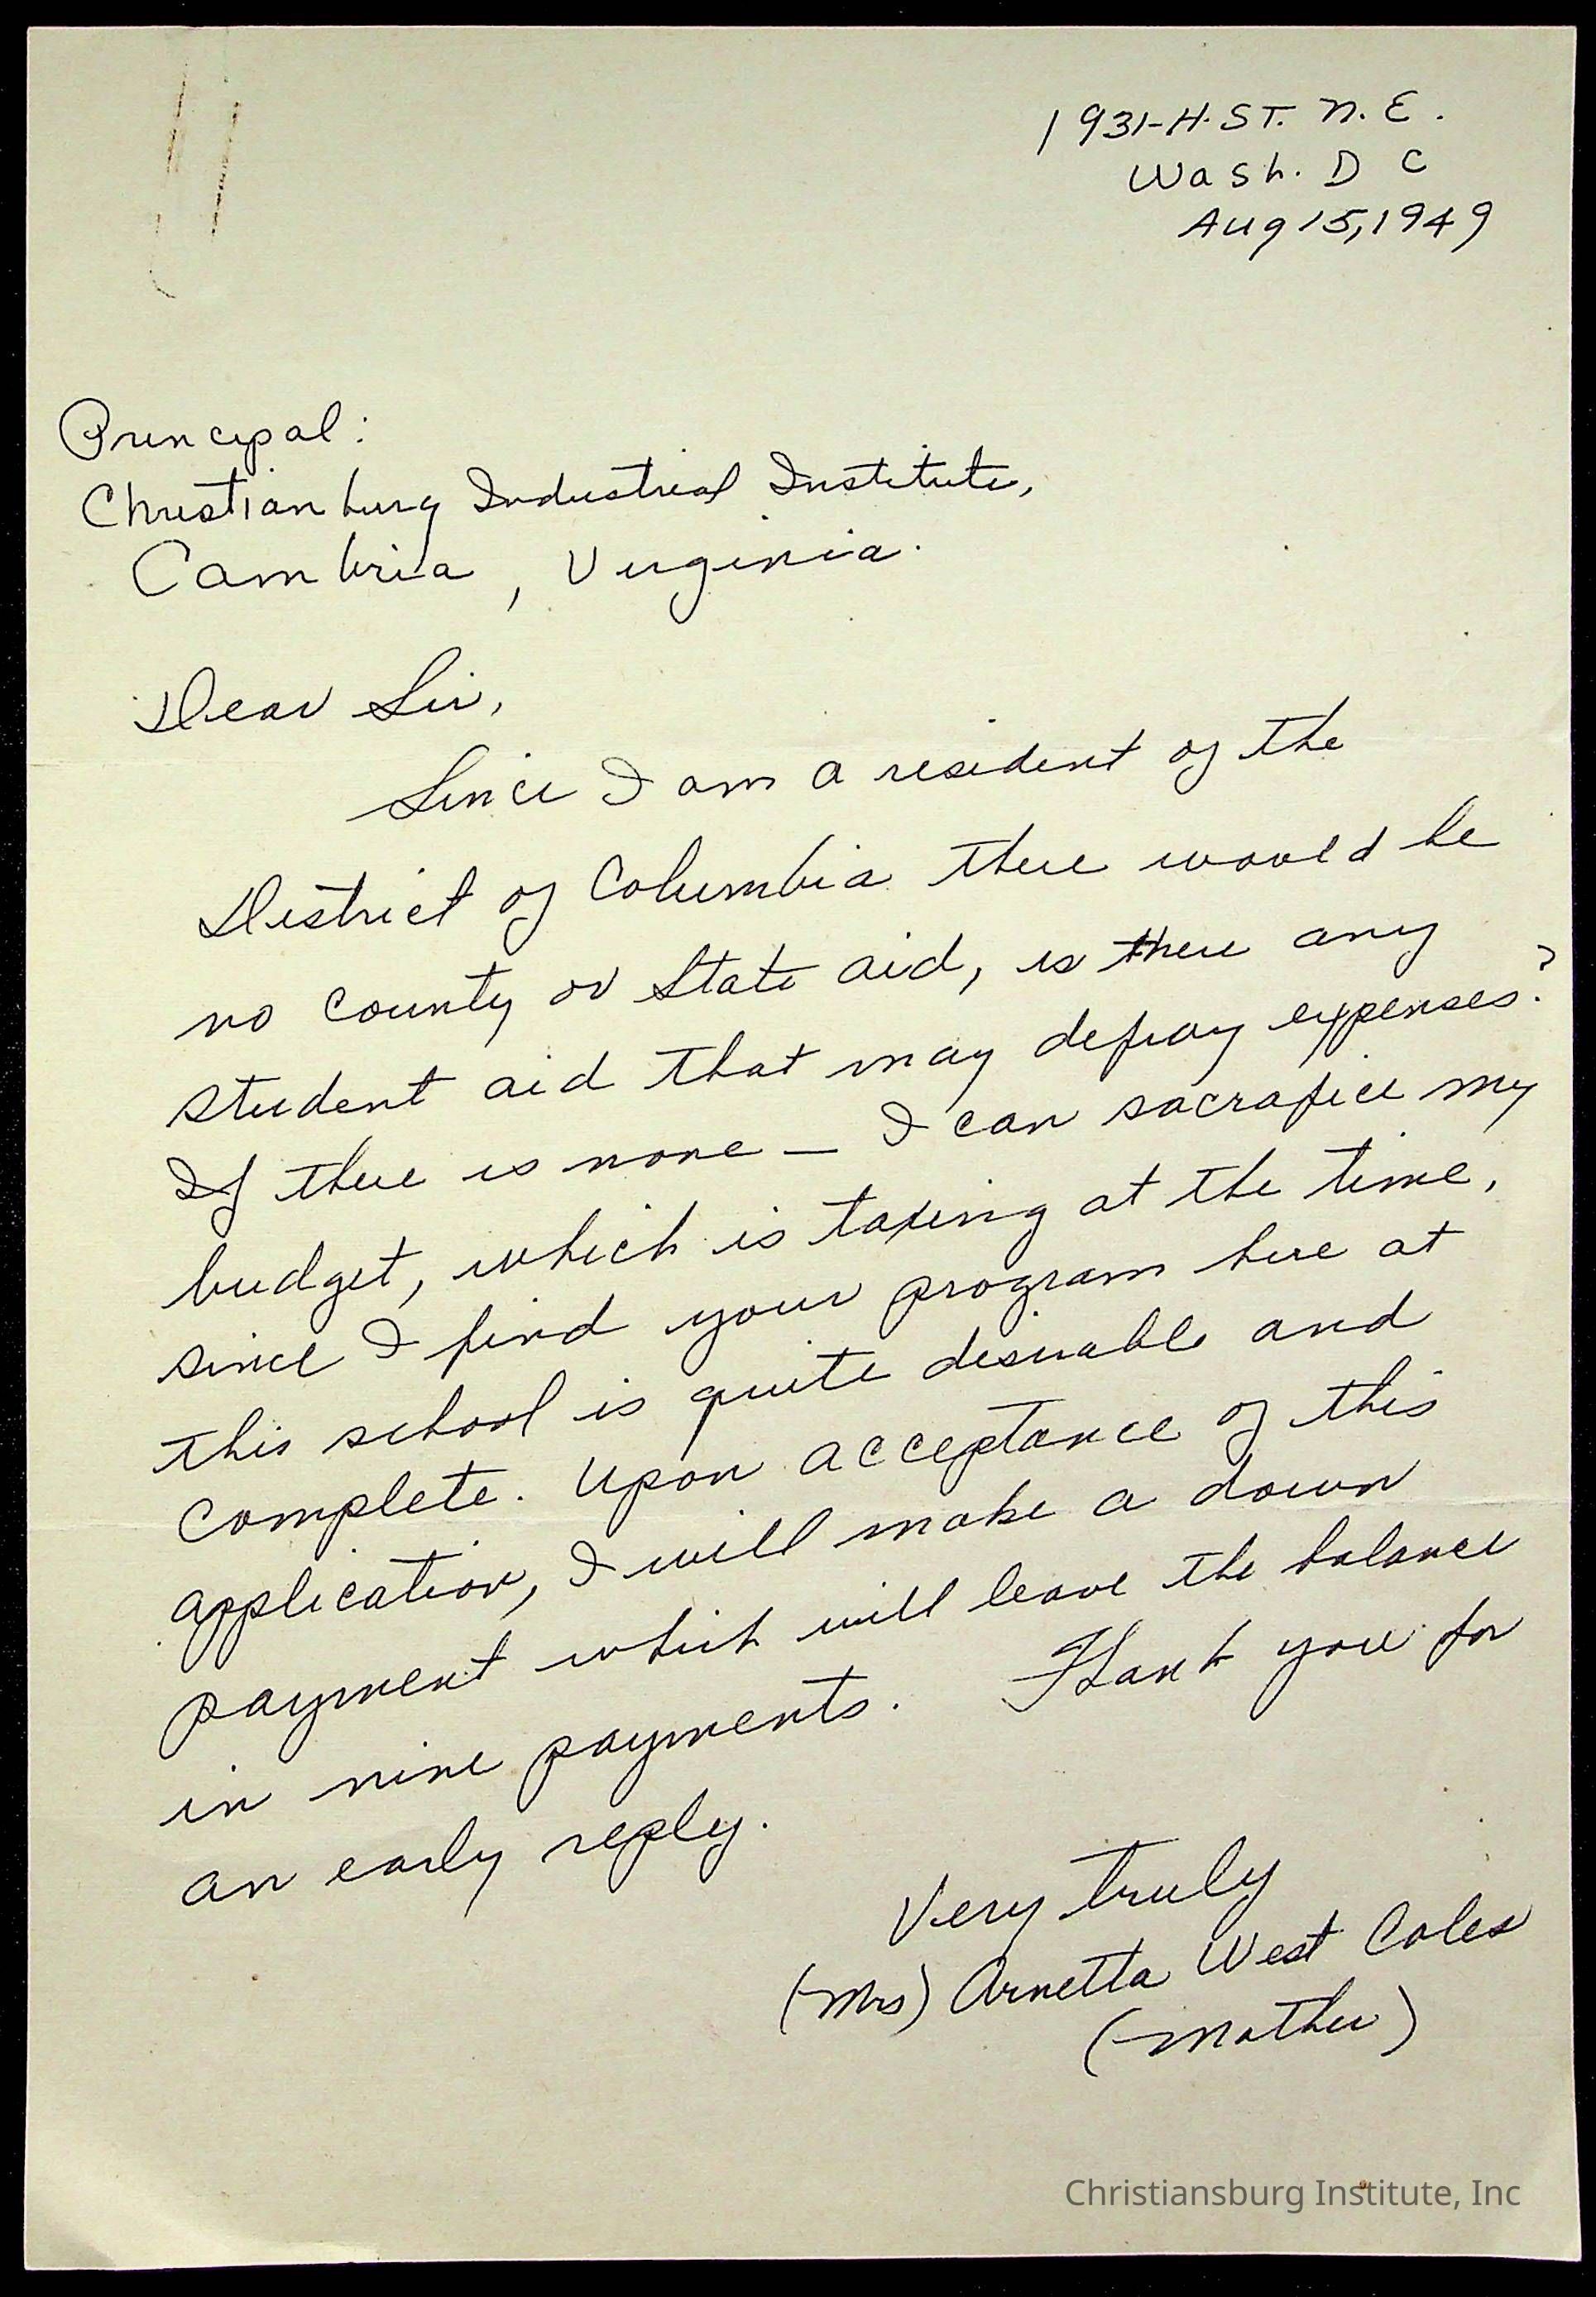 1931-H. ST. N. E.
Wash. D C
Aug 15, 1949
Principal:
Christianburg Industrial Institute,
Cambria, Virginia.
Dear Sir,
Since I am a resident of the
District of Columbia there would be
no county or State aid, is there any
student aid that may defray expenses?
If there is none — I can sacrafice my
budget, which is taxing at the time,
since I find your program here at
this school is quite desirable and
complete. Upon acceptance of this
application, I will make a down
payment which will leave the balance
in nine payments. Thank you for
an early reply.
Very truly
(Mrs) Arnetta West Coles
(Mother)
Christiansburg Institute, Inc